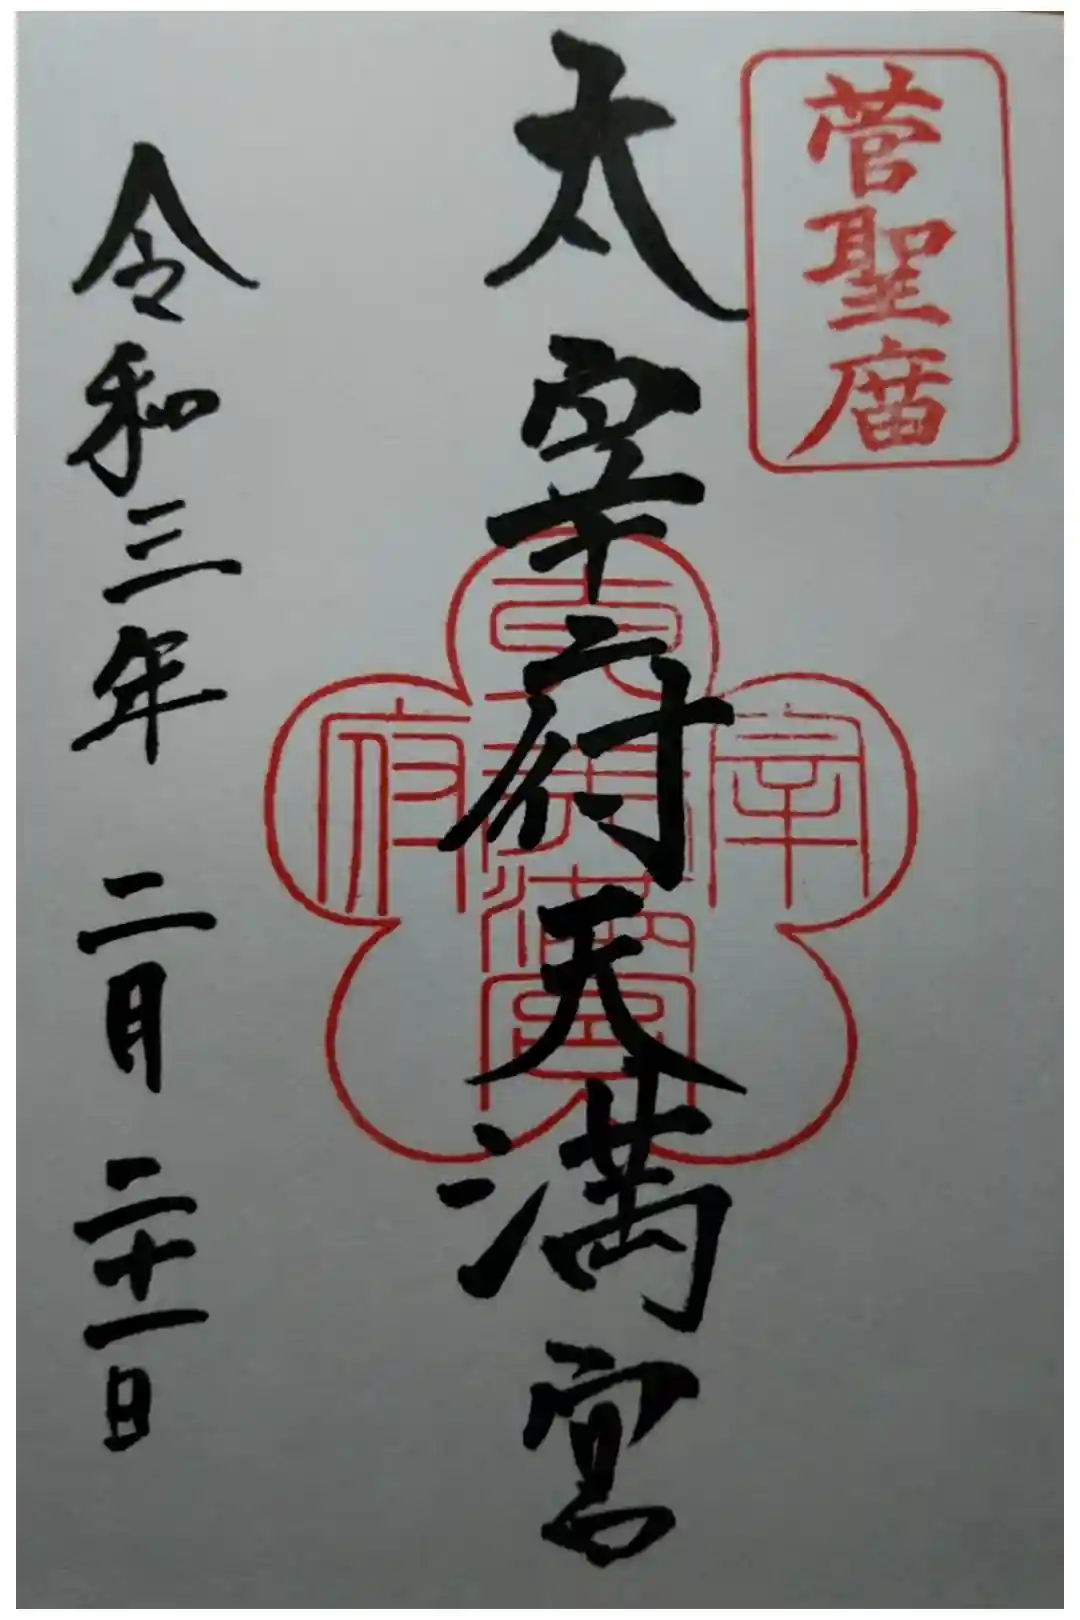 菅聖庿
太宰府天満宮
太宰府天満宮
令和三年 二月 二十一日